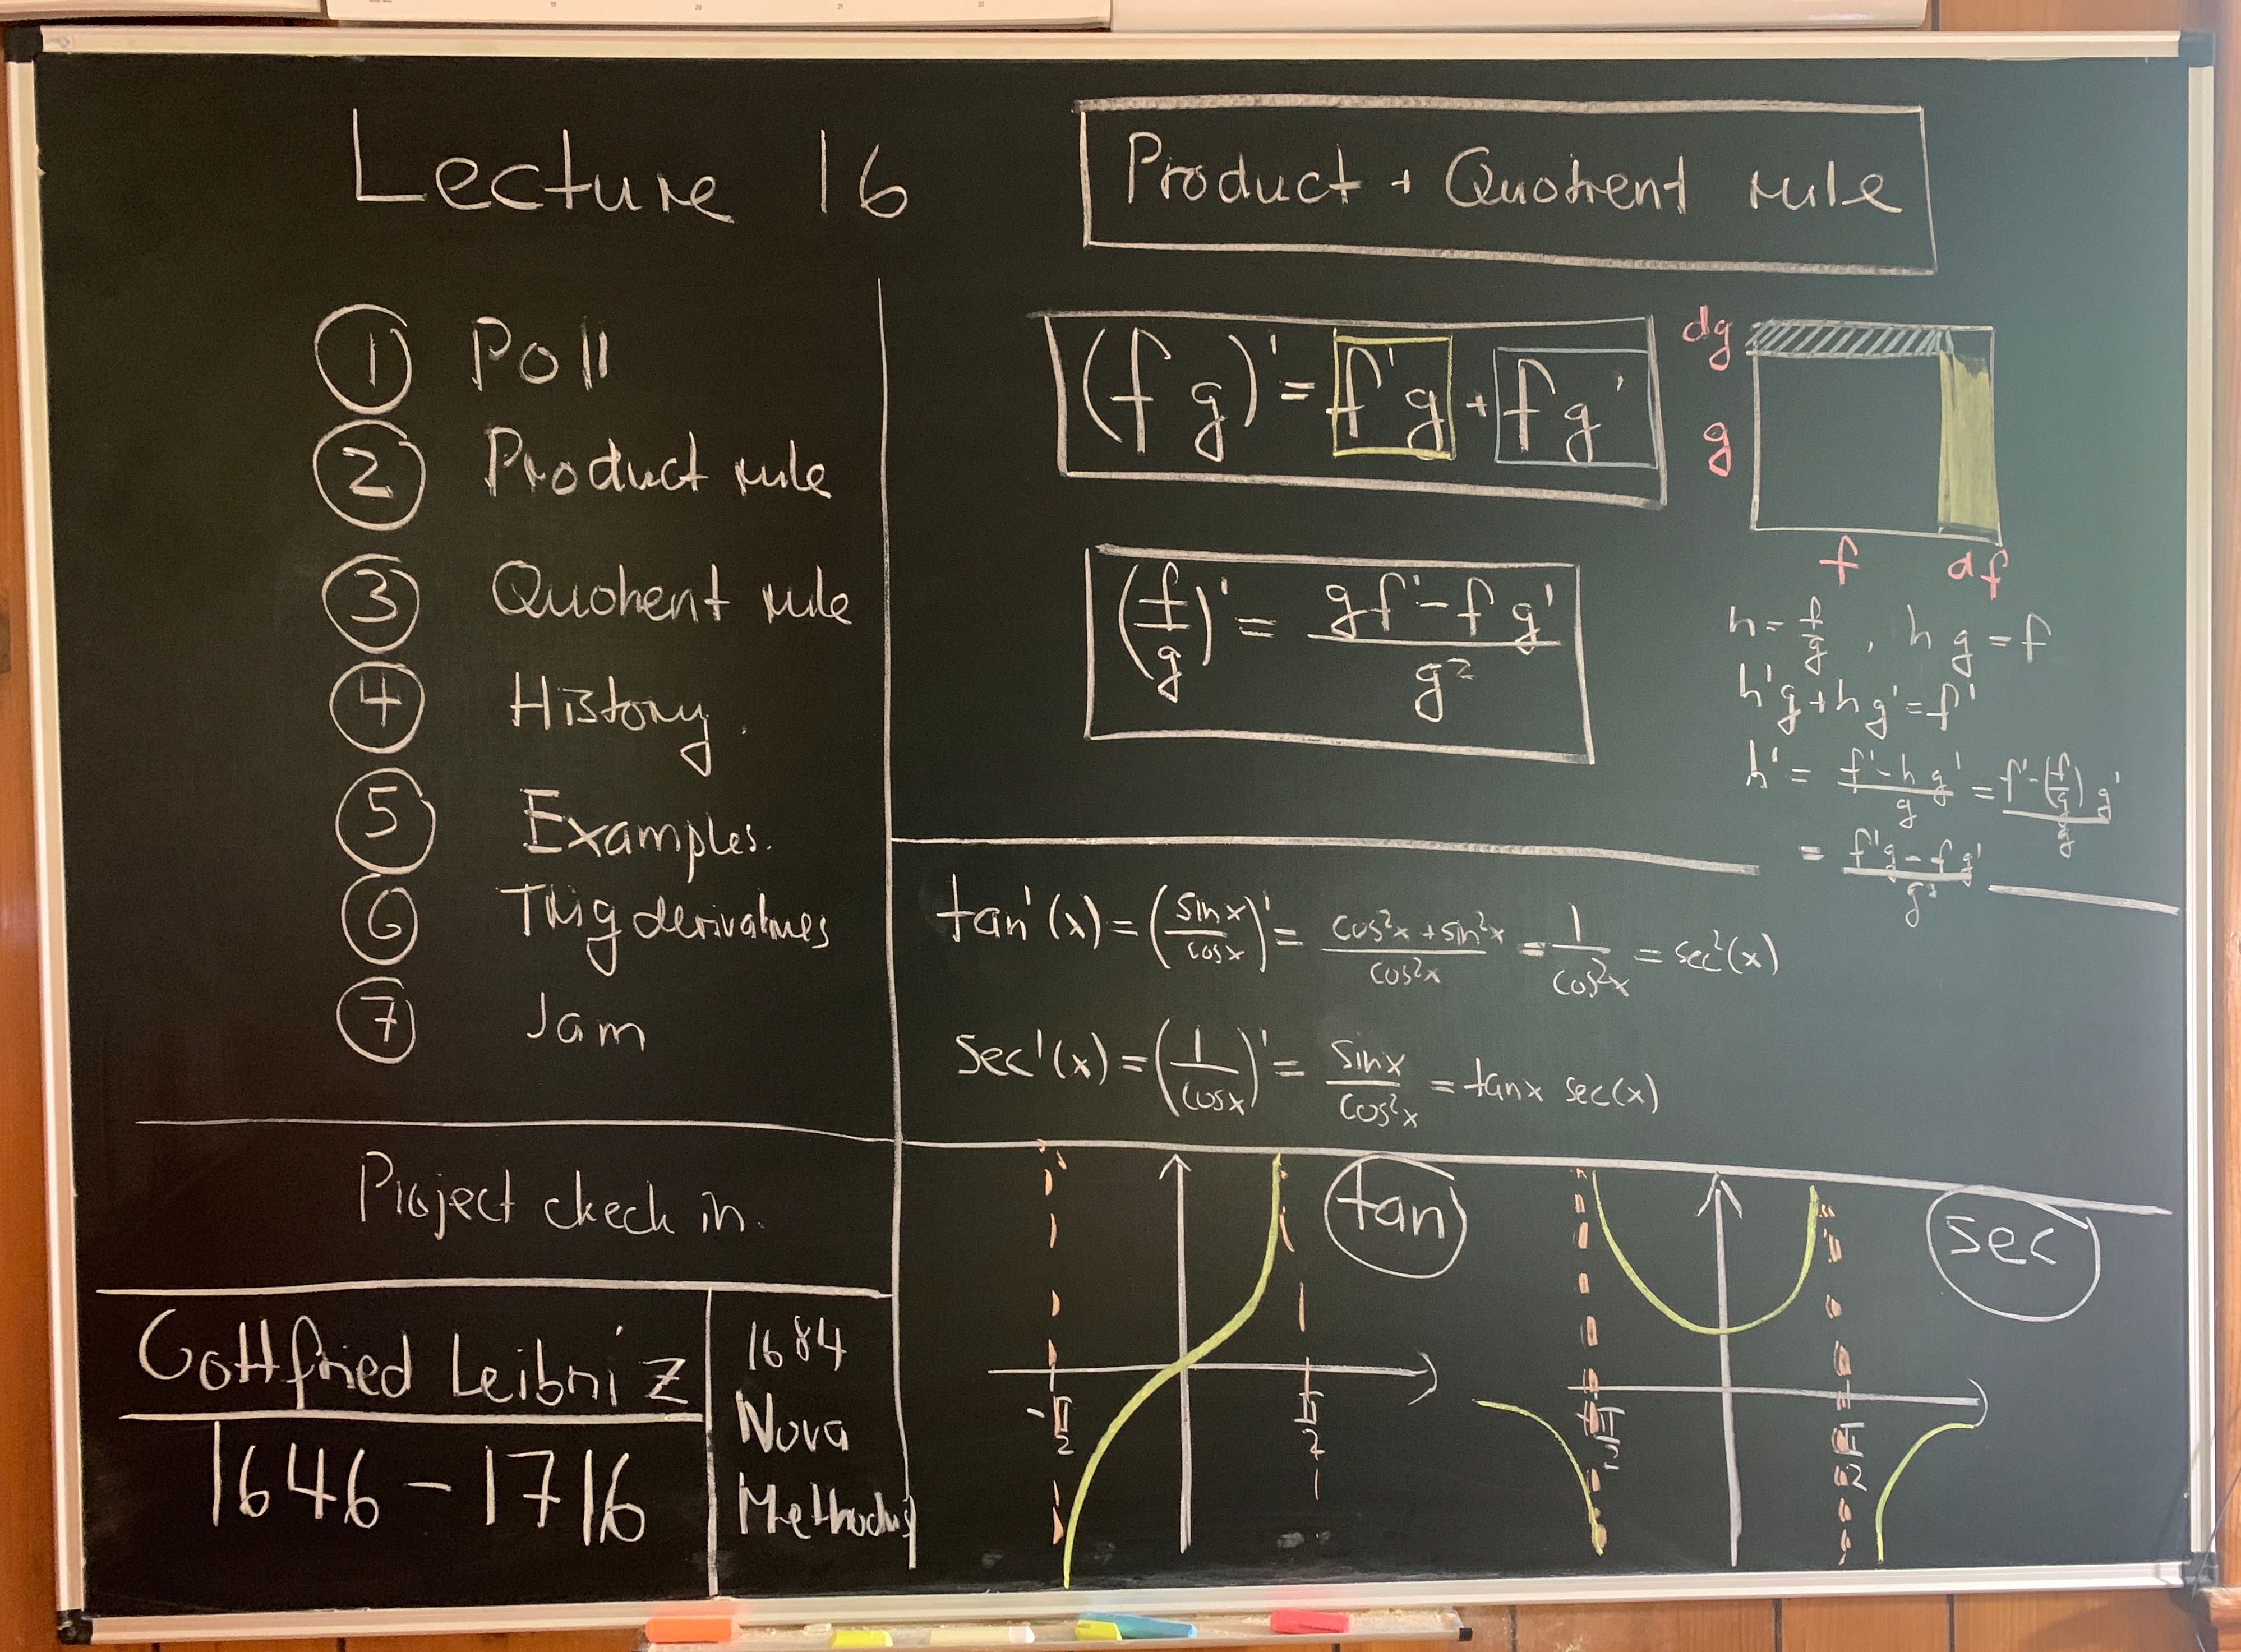 Lecture 16
Product + Quotient rule
① Poll
② Product rule
③ Quotient rule
④ History.
⑤ Examples.
⑥ Trig derivatives
⑦ Jam
Project check in.
Gottfried Leibniz
1646 - 1716
1684
Nova
Methodus
(f g)' = f'g + f g'
dg
g
f df
(f/g)' = (gf' - f g')/g²
h = f/g , h g = f
h'g + h g' = f'
h' = (f' - h g')/g = (f' - (f/g) g')/g
= (f'g - f g')/g²
tan'(x) = (sin x/cos x)' = (cos²x + sin²x)/cos²x = 1/cos²x = sec²(x)
sec'(x) = (1/cos x)' = sin x/cos²x = tan x sec(x)
tan
-π/2 π/2
sec
-π/2 π/2